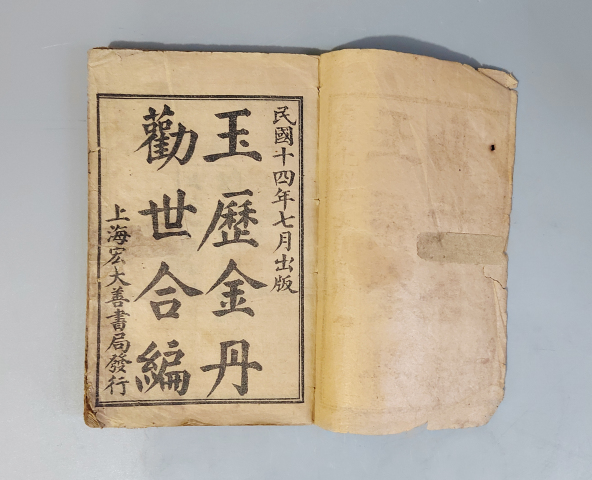 民國十四年七月出版
玉歷金丹
勸世合編
上海宏大善書局發行